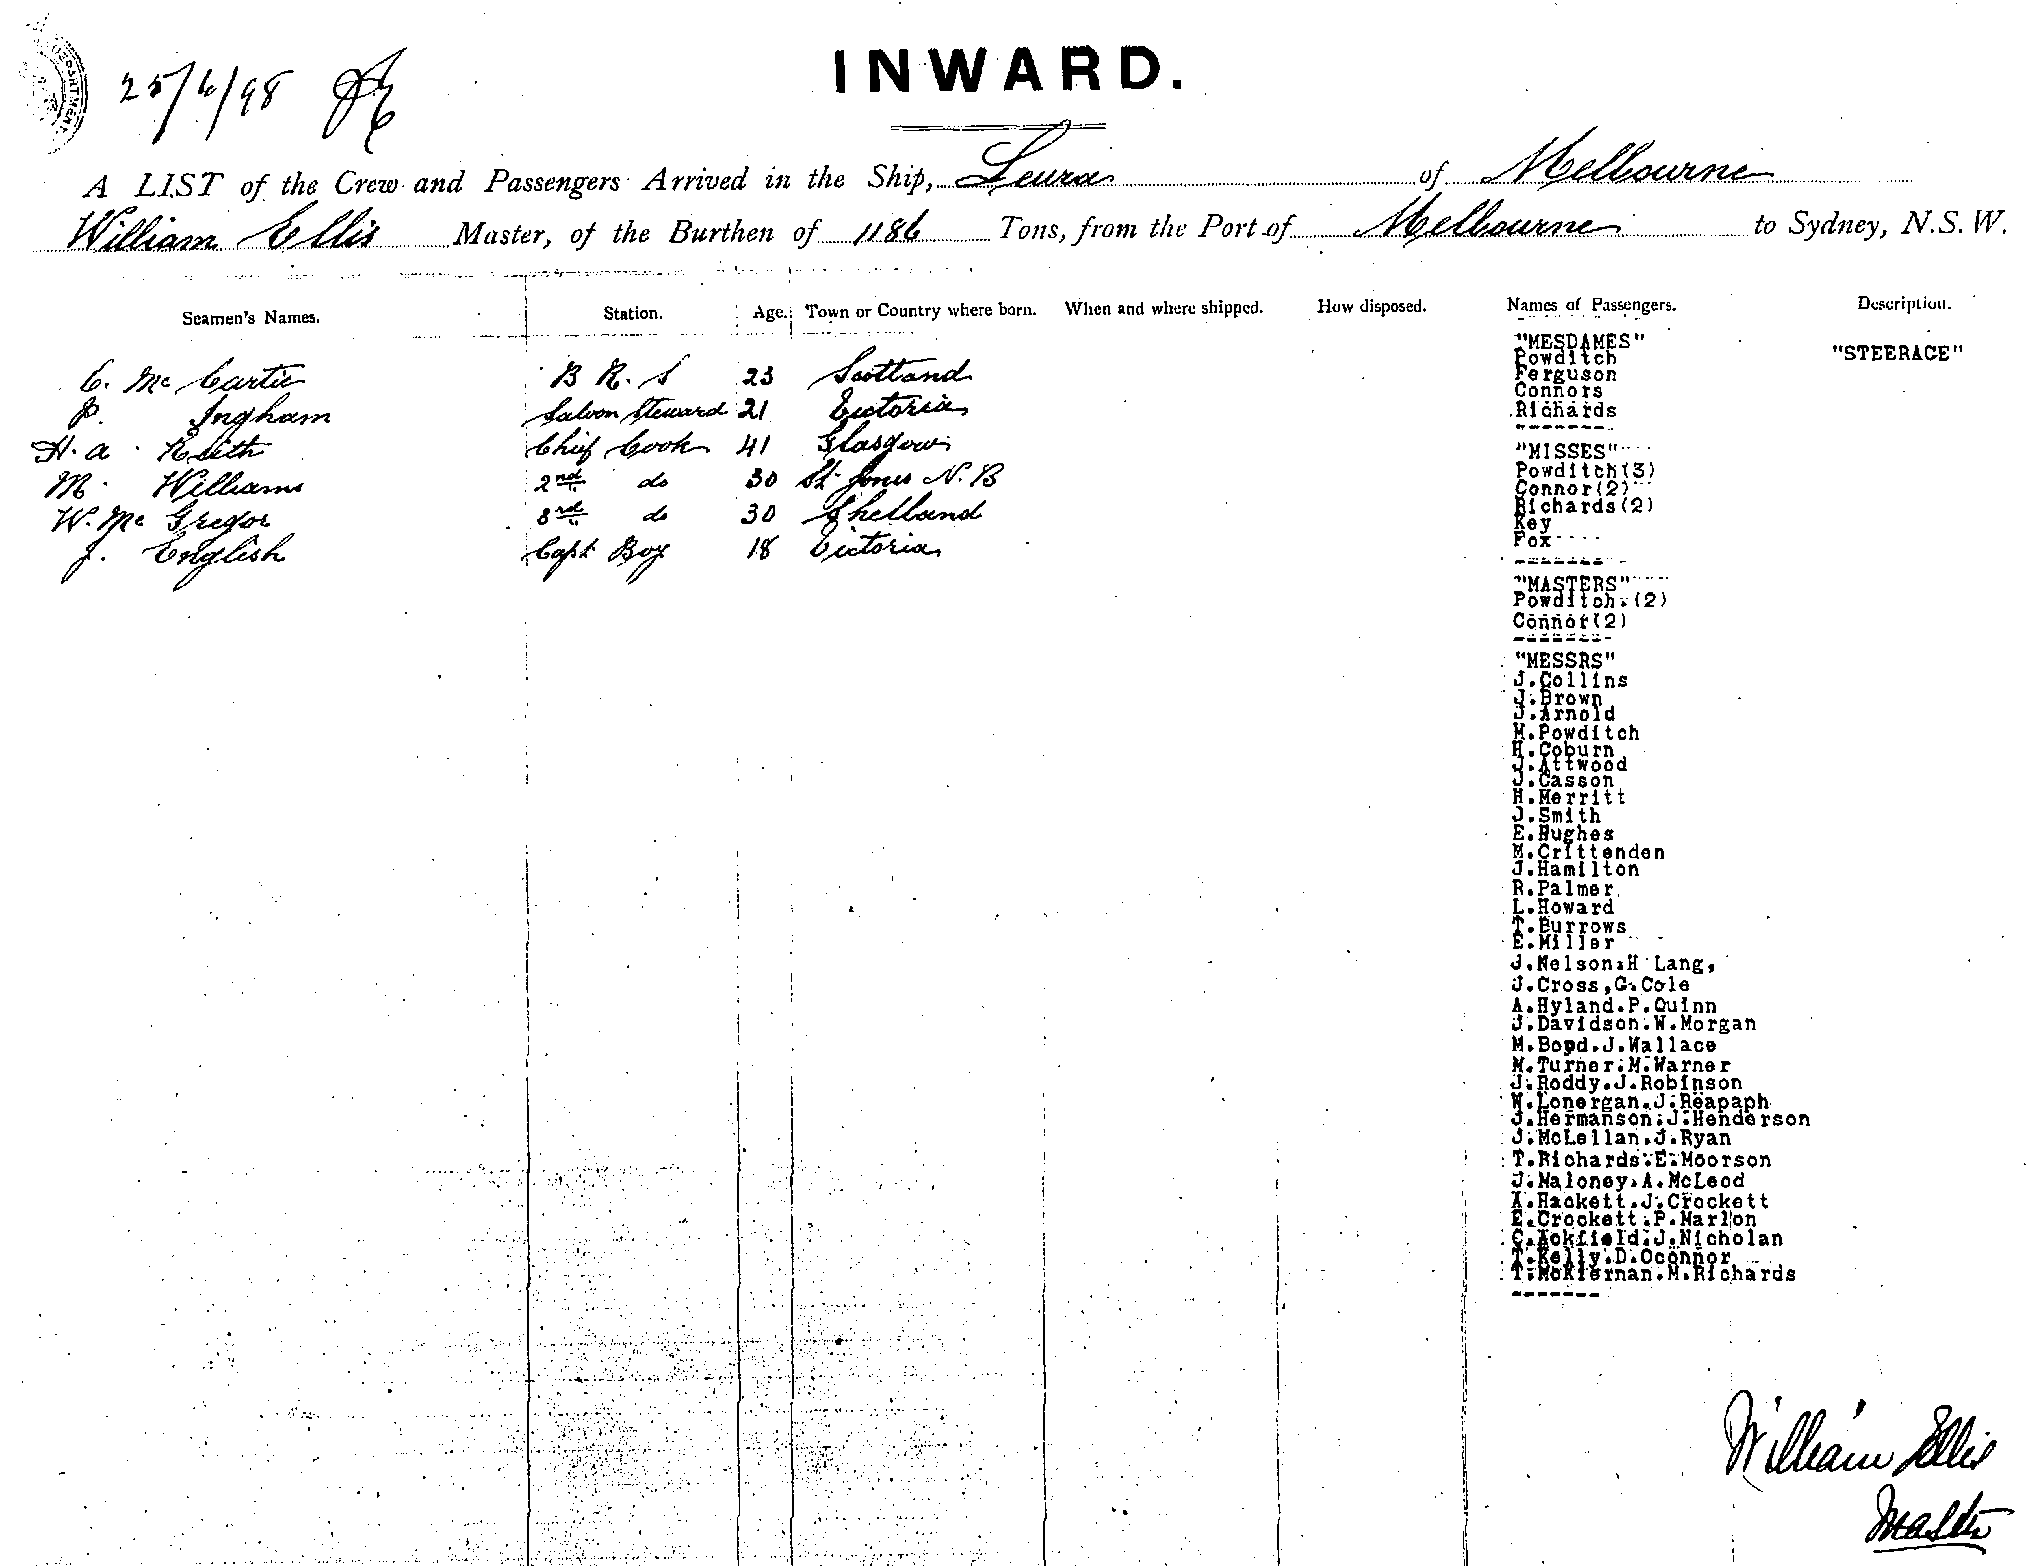 25/6/98
INWARD.
A LIST of the Crew and Passengers Arrived in the Ship, Leura of Melbourne
William Ellis Master, of the Burthen of 1186 Tons, from the Port of Melbourne to Sydney, N.S.W.
Seamen's Names. Station. Age. Town or Country where born. When and where shipped. How disposed. Names of Passengers. Description.
C. Mc Cartie B R. S 23 Scotland
P. Ingham Saloon Steward 21 Victoria
H. A. Keith Chief Cook 41 Glasgow
M. Williams 2nd do 30 St. Jones N.B
W. Mc Gregor 3rd do 30 Shetland
J. English Capt Boy 18 Victoria
"MESDAMES"
Powditch "STEERAGE"
Ferguson
Connors
Richards
"MISSES"
Powditch(3)
Connor(2)
Richards(2)
Key
Fox
"MASTERS"
Powditch.(2)
Connor(2)
"MESSRS"
J.Collins
J.Brown
J.Arnold
M.Powditch
H.Coburn
J.Attwood
J.Casson
H.Merritt
J.Smith
E.Hughes
M.Crittenden
J.Hamilton
R.Palmer
L.Howard
T.Burrows
E.Miller
J.Nelson.H Lang,
J.Cross,G.Cole
A.Hyland.P.Quinn
J.Davidson.W.Morgan
M.Boyd.J.Wallace
M.Turner.M.Warner
J.Roddy.J.Robinson
W.Lonergan.J.Reapaph
J.Hermanson.J.Henderson
J.McLellan.J.Ryan
T.Richards.E.Moorson
J.Maloney.A.McLeod
A.Hackett.J.Crockett
E.Crockett.P.Marlon
C.Ackfield.J.Nicholan
T.Kelly.D.Oconnor
T.McKiernan.M.Richards
William Ellis
Master